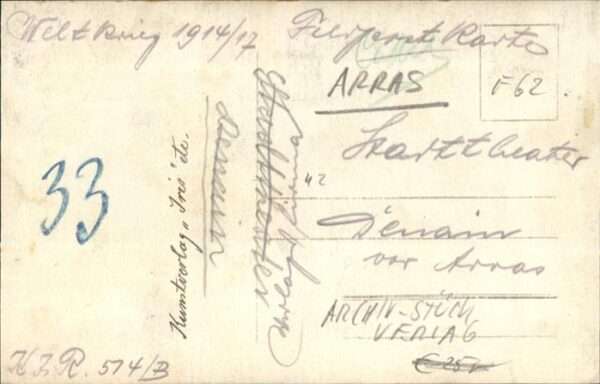 Weltkrieg 1914/17
Feldpost Karte
ARRAS
F62.
Stadttheater
42
Denain
vor Arras
ARCHIV-STÜCK
VERLAG
€ 25
33
Kunstverlag
Denain
Stadttheater
K.F.R. 574/B